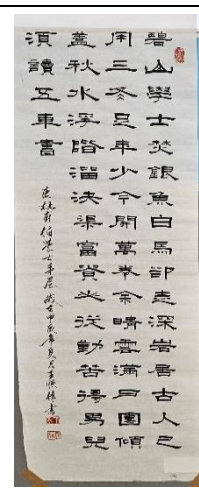 碧山學士焚銀魚白馬卻走深岩居古人已
用三冬足年少今開萬卷余晴雲滿戶團傾
蓋秋水浮階溜決渠富貴必從勤苦得男兒
須讀五車書
唐杜甫柏學士茅屋